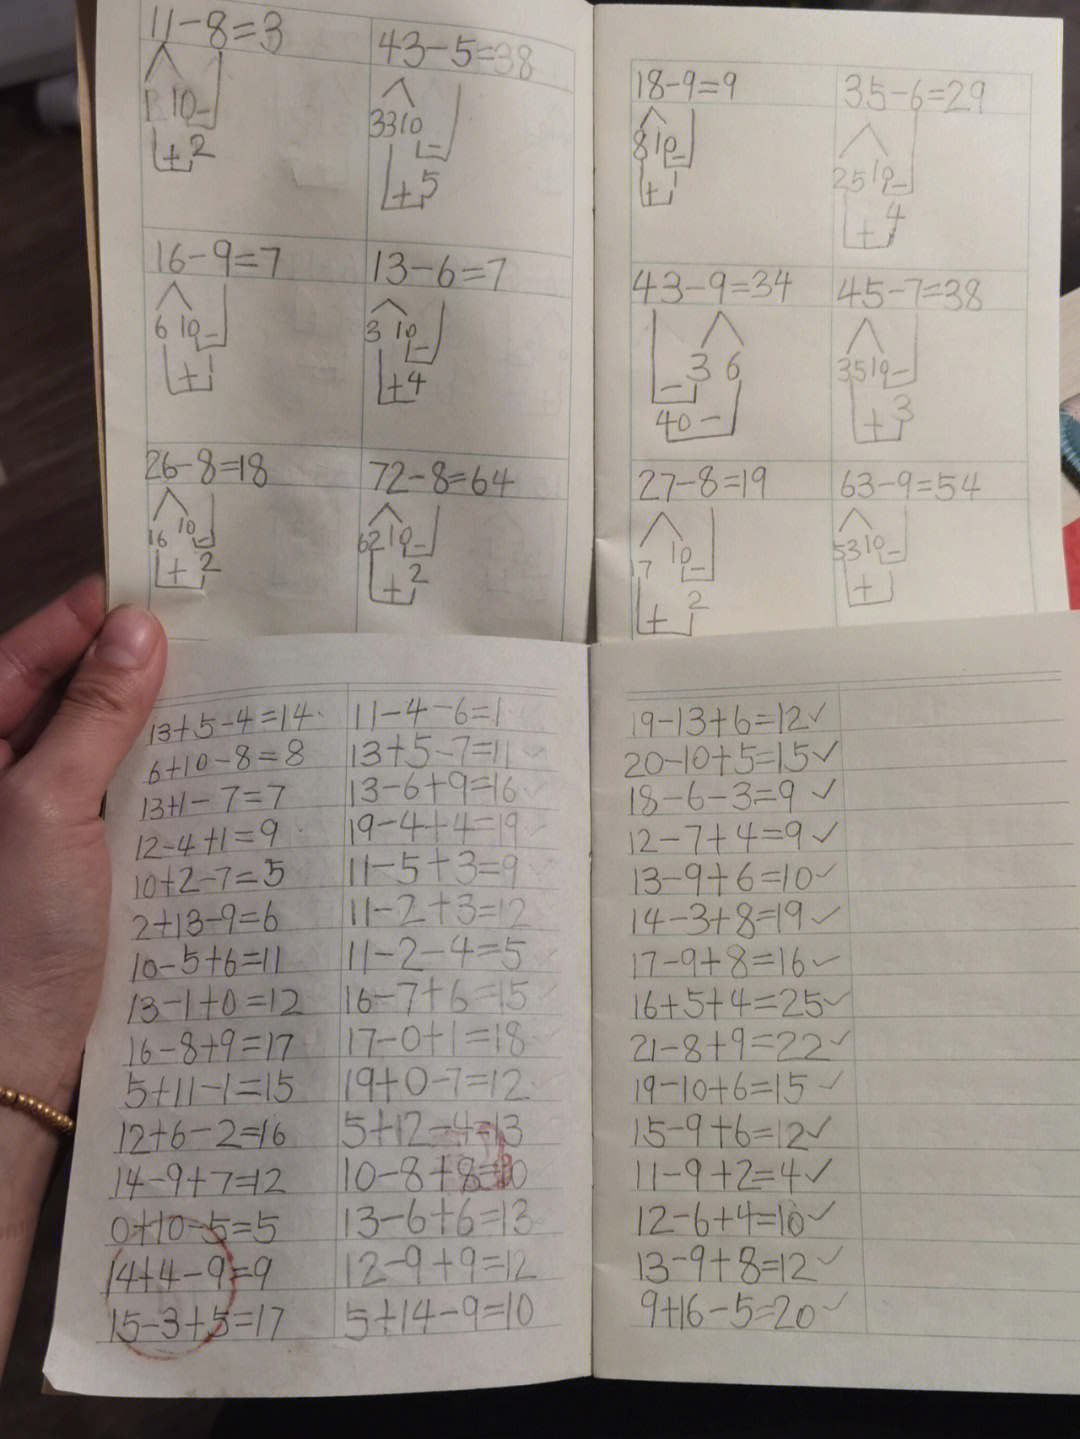 11-8=3
1 10 -
+ 2
43-5=38
33 10 -
+ 5
16-9=7
6 10 -
+ 1
13-6=7
3 10 -
+ 4
26-8=18
16 10 -
+ 2
72-8=64
62 10 -
+ 2
18-9=9
8 10 -
+ 1
35-6=29
25 10 -
+ 4
43-9=34
3 6
-
40 -
45-7=38
35 10 -
+ 3
27-8=19
7 10 -
+ 2
63-9=54
53 10 -
+ 1
13+5-4=14
6+10-8=8
13+1-7=7
12-4+1=9
10+2-7=5
2+13-9=6
10-5+6=11
13-1+0=12
16-8+9=17
5+11-1=15
12+6-2=16
14-9+7=12
0+10-5=5
14+4-9=9
15-3+5=17
11-4-6=1
13+5-7=11
13-6+9=16
19-4+4=19
11-5+3=9
11-2+3=12
11-2-4=5
16-7+6=15
17-0+1=18
19+0-7=12
5+12-4=13
10-8+8=10
13-6+6=13
12-9+9=12
5+14-9=10
19-13+6=12✓
20-10+5=15✓
18-6-3=9✓
12-7+4=9✓
13-9+6=10✓
14-3+8=19✓
17-9+8=16✓
16+5+4=25✓
21-8+9=22✓
19-10+6=15✓
15-9+6=12✓
11-9+2=4✓
12-6+4=10✓
13-9+8=12✓
9+16-5=20✓